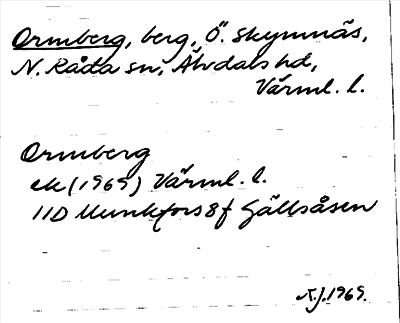 Ormberg, berg, Ö. Skymnäs,
N. Råda sn, Älvdals hd,
Värml. l.
Ormberg
ek (1969) Värml. l.
11D Munkfors 8f Gällsåsen
N.J. 1969.